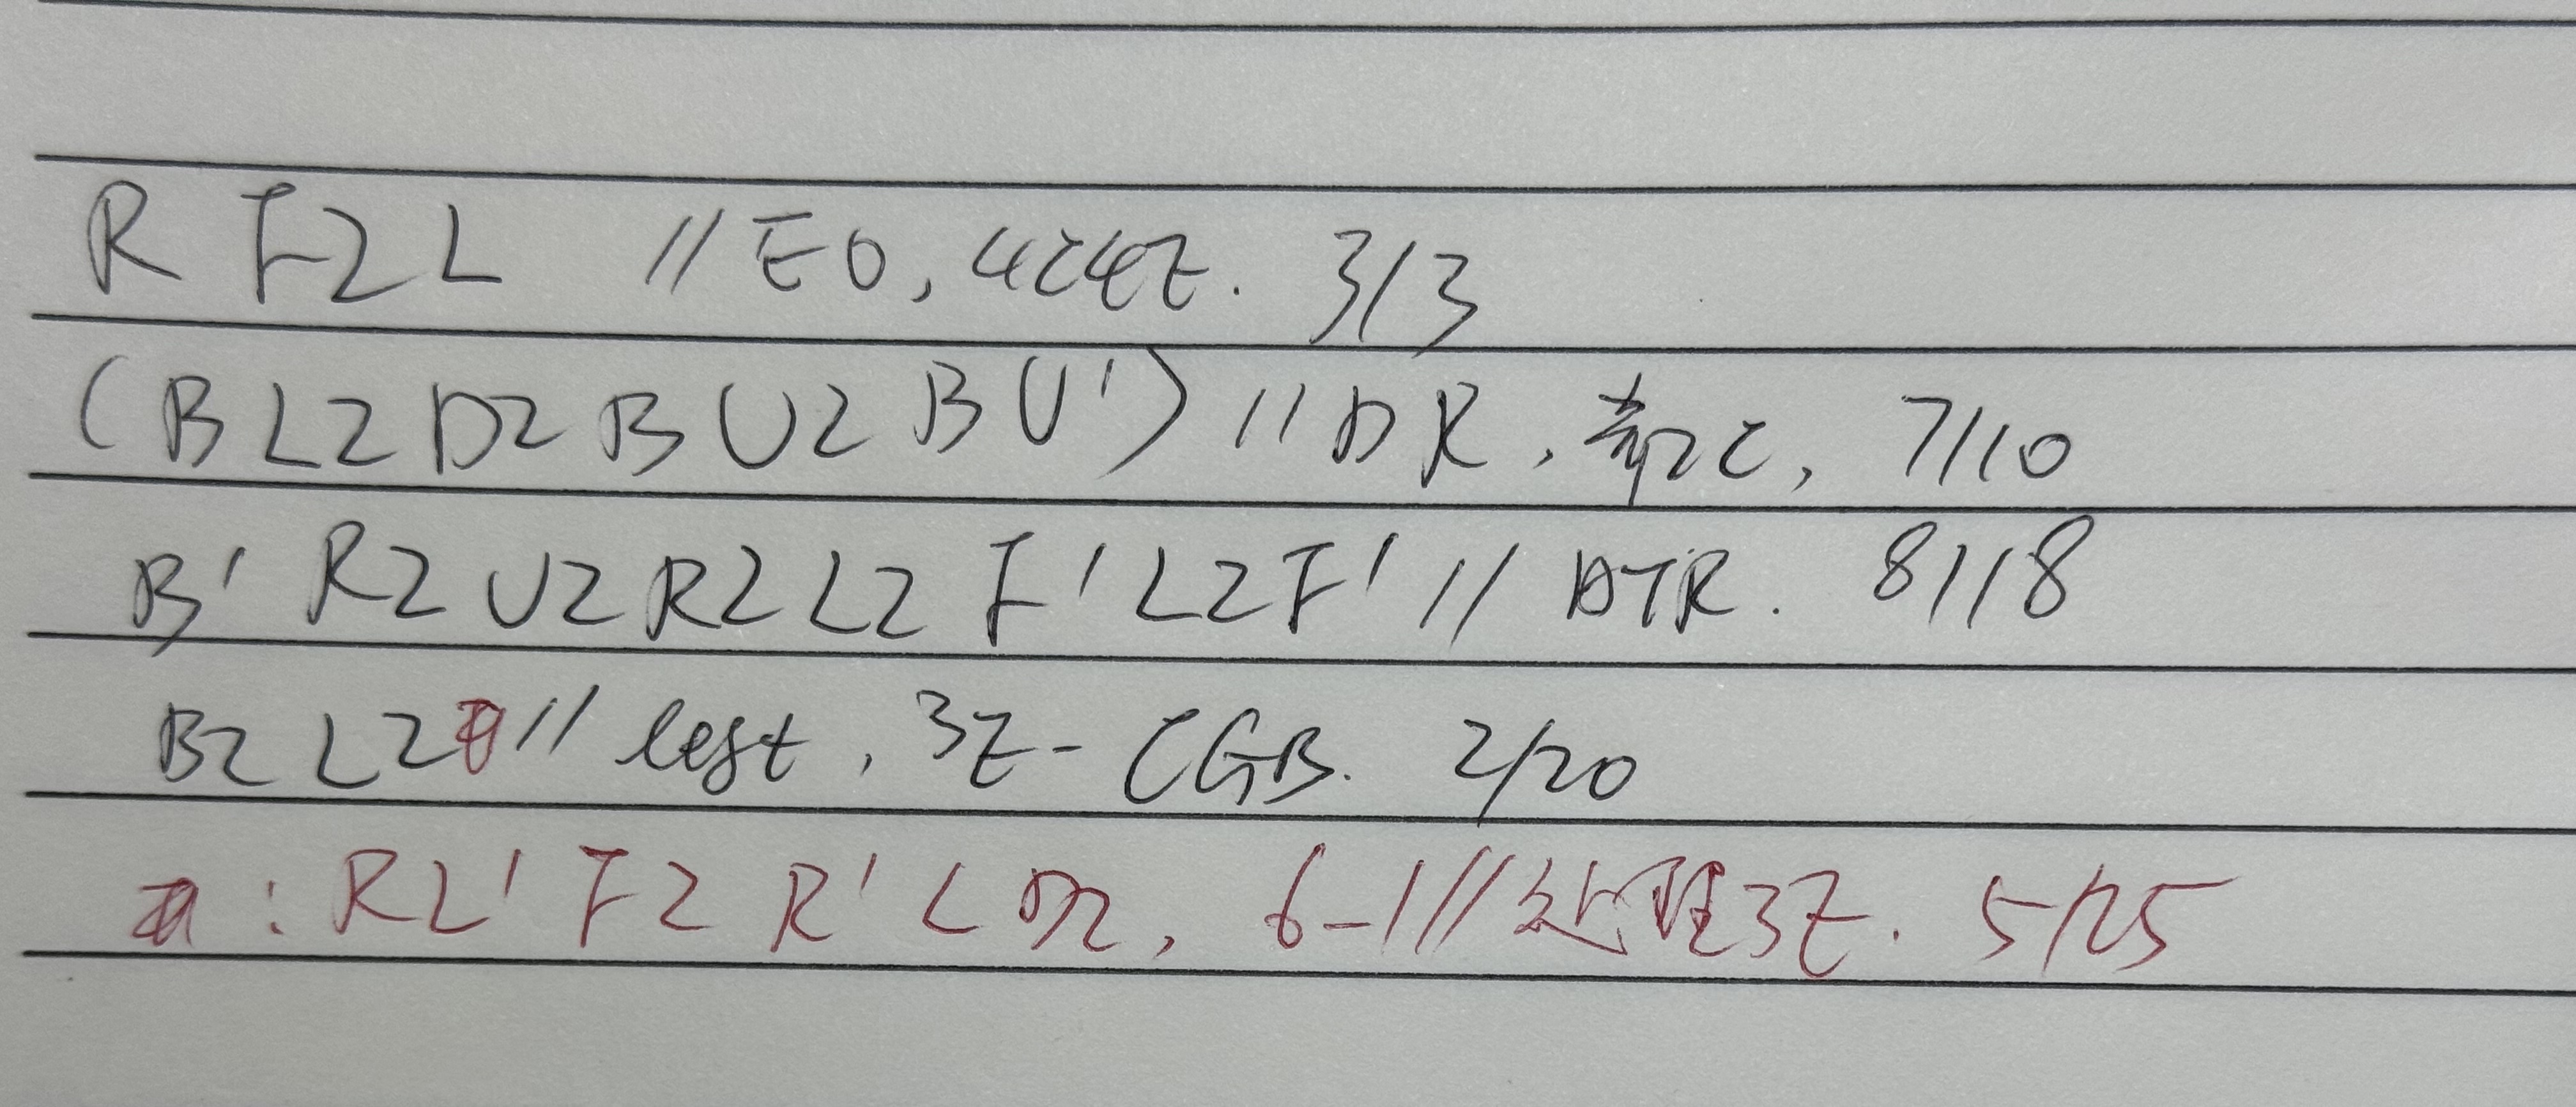 R F2 L // EO, 4c4e. 3/3
(B L2 D2 B U2 B U') // DR, 2c, 7/10
B' R2 U2 R2 L2 F' L2 F' // HTR. 8/18
B2 L2 // lest, 3e- CGB. 2/20
: R L' F2 R' L D2, 6-1 // 处理3e. 5/25